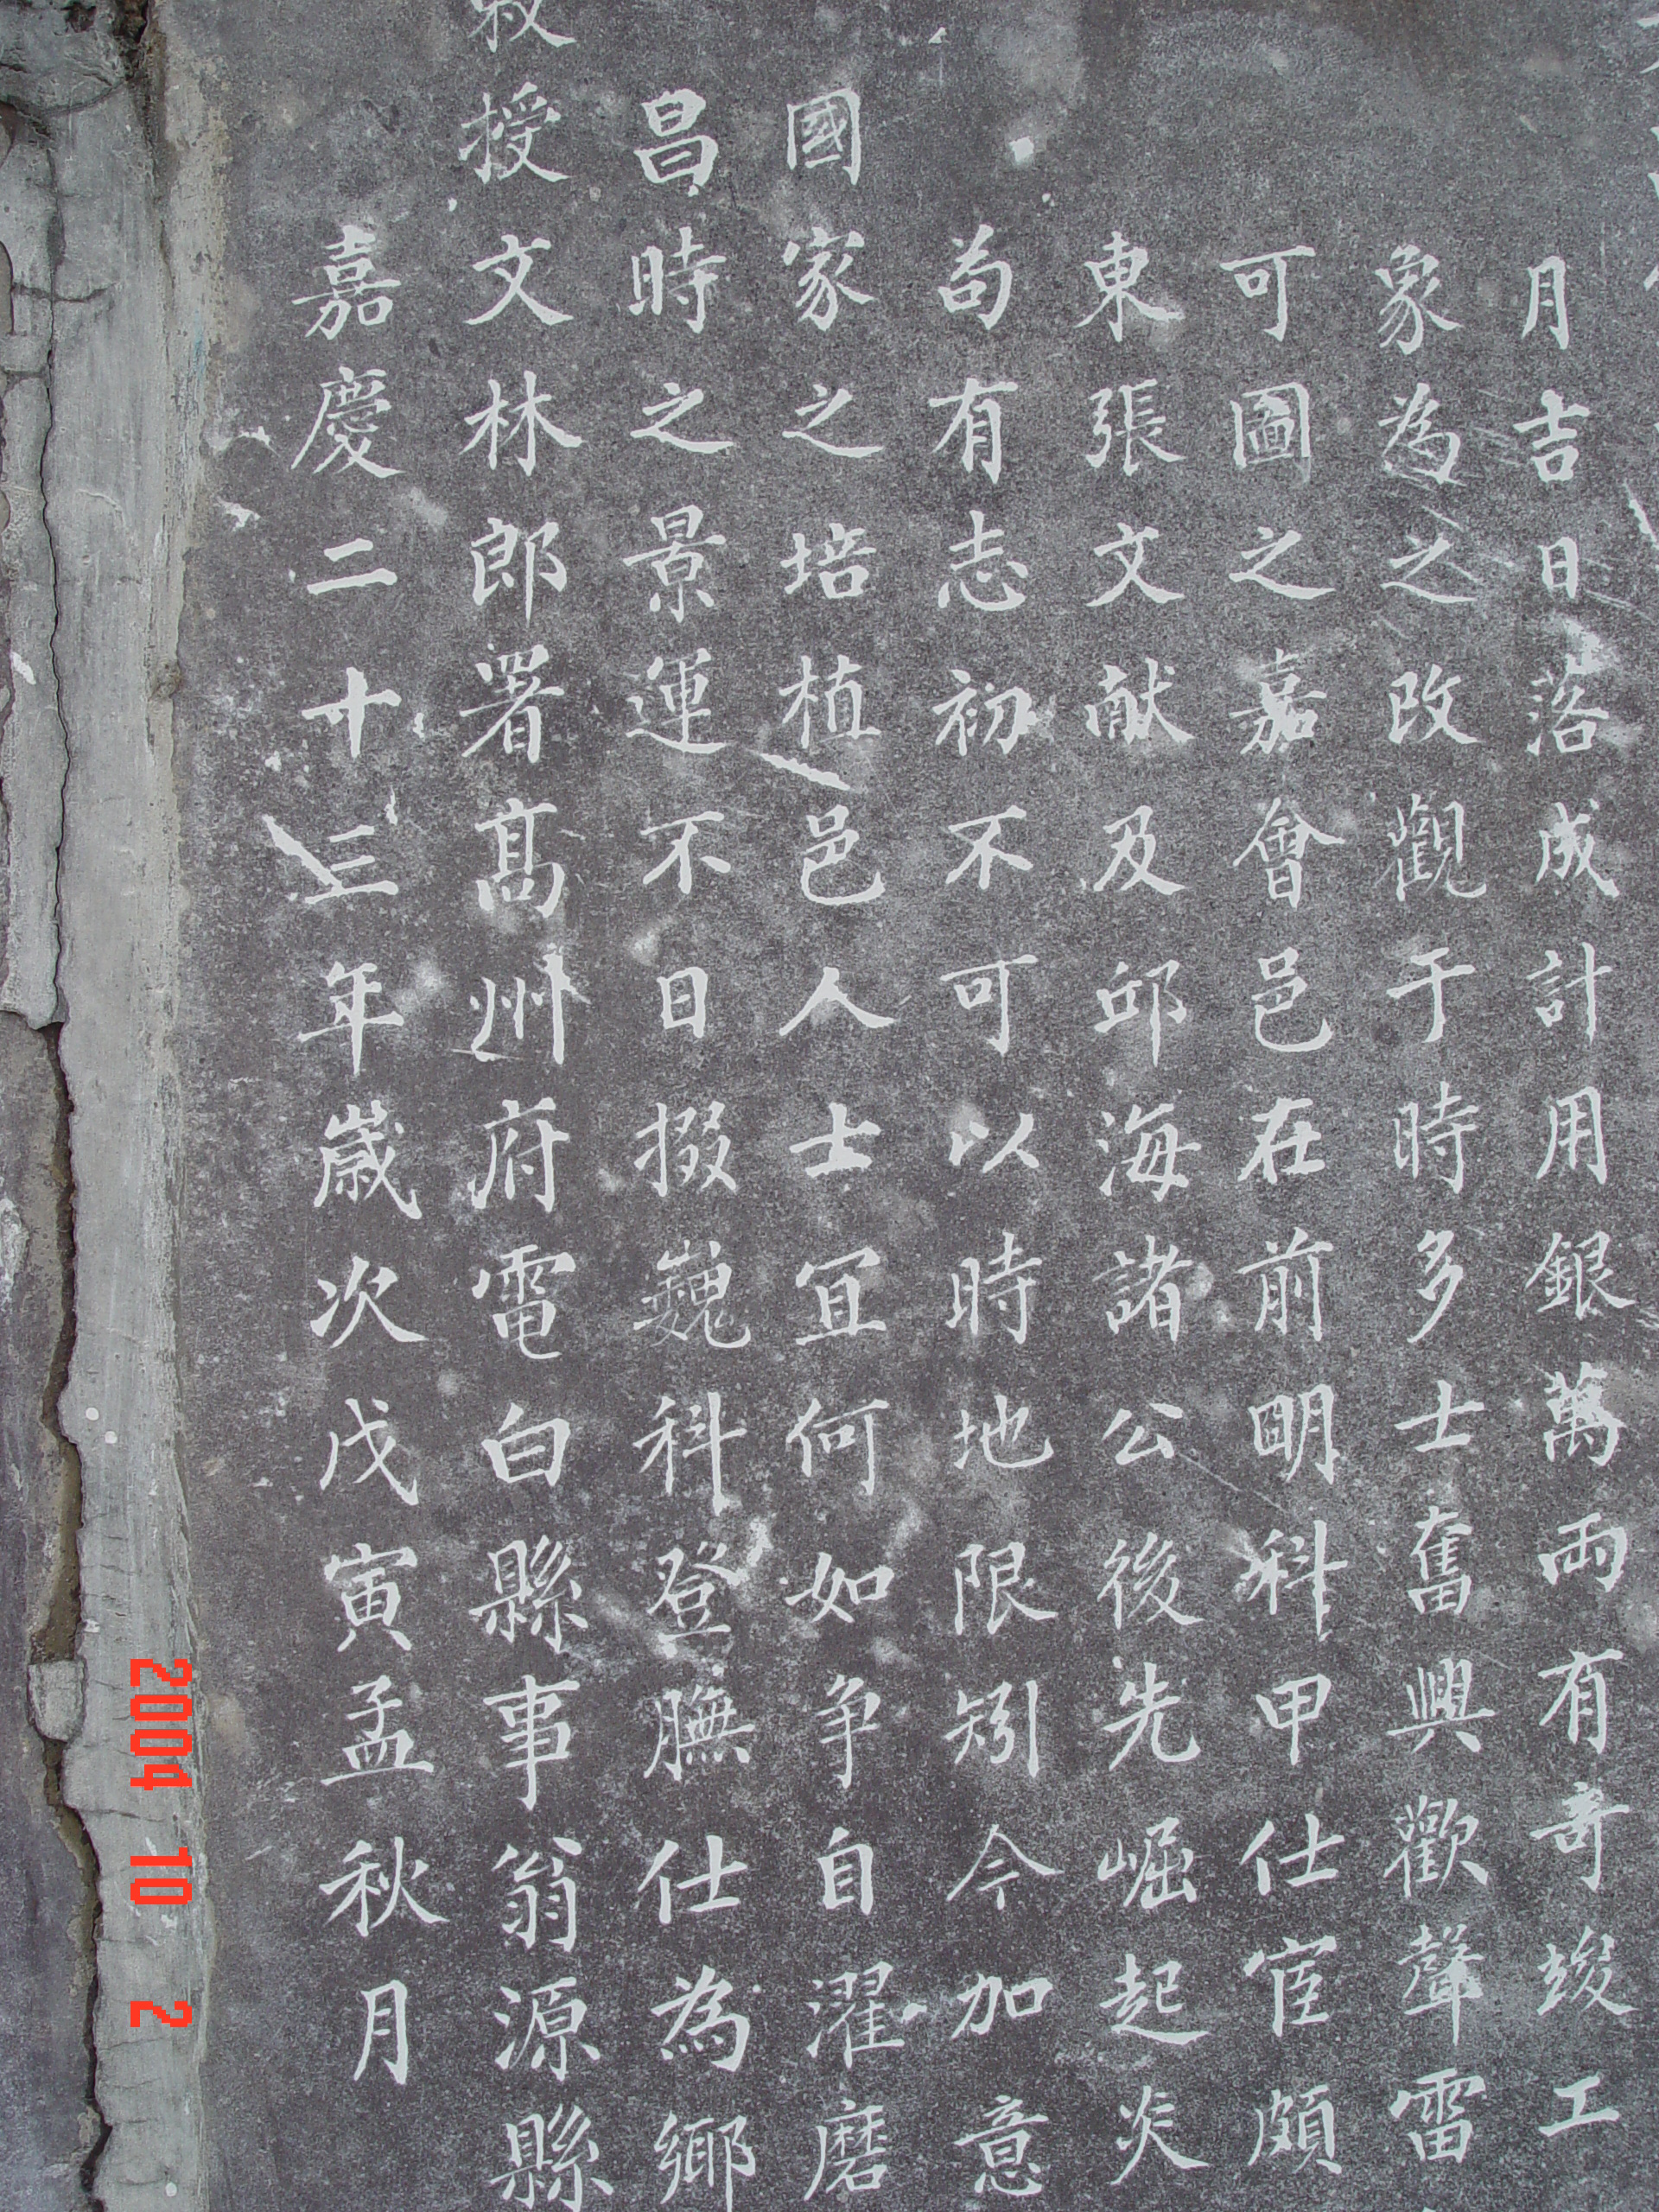 月吉日落成計用銀萬兩有奇竣工
象為之改觀于時多士奮興歡聲雷
可圖之嘉會邑在前明科甲仕宦頗
東張文献及邱海諸公後先崛起炎
苟有志初不可以時地限矧今加意
國家之培植邑人士宜何如争自濯磨
昌時之景運不日掇巍科登膴仕為鄉
敕授文林郎署髙州府電白縣事翁源縣
嘉慶二十三年歲次戊寅孟秋月
2004 10 2